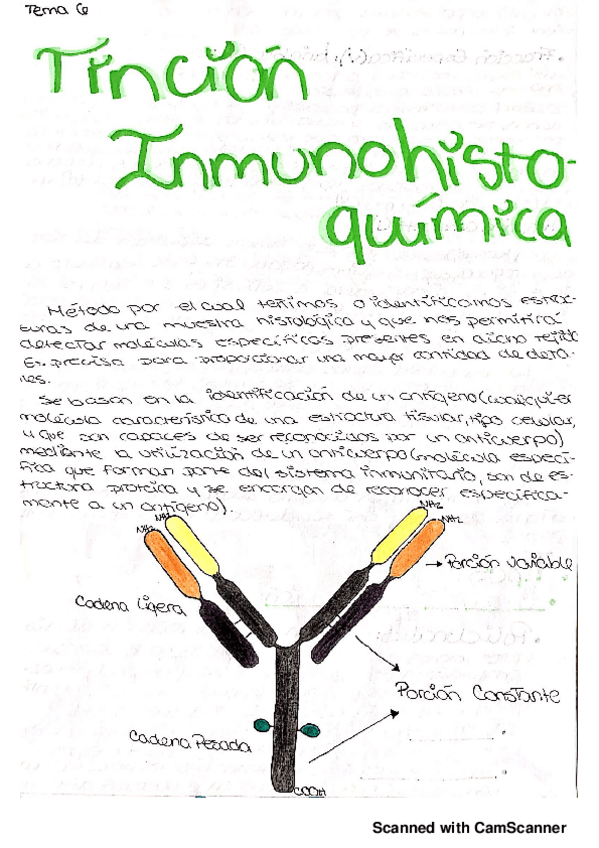 Tema 6
Tinción
Inmunohisto-
química
Método por el cual teñimos o identificamos estruc-
turas de una muestra histológica y que nos permitirá
detectar moléculas específicas presentes en dicho tejido
Es precisa para proporcionar una mayor cantidad de deta-
lles.
Se basan en la identificación de un antígeno (cualquier
molécula característica de una estructura tisular, tipo celular,
y que son capaces de ser reconocidos por un anticuerpo)
mediante la utilización de un anticuerpo (molécula especí-
fica que forman parte del sistema inmunitario, son de es-
tructura proteica y se encargan de reconocer específica-
mente a un antígeno).
NH2 NH2
NH2 NH2
→ Porción variable
Cadena ligera
Porción Constante
Cadena Pesada
COOH
Scanned with CamScanner